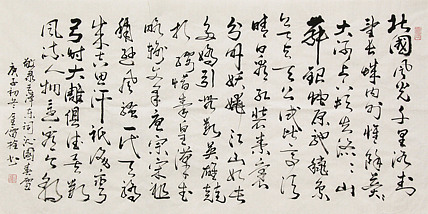 北國風光千里冰封
望長城內外惟餘莽莽
大河上下頓失滔滔山
舞銀蛇原馳蠟象
欲與天公試比高須
晴日看紅裝素裹
分外妖嬈江山如此
多嬌引無數英雄競
折腰惜秦皇漢武
略輸文采唐宗宋祖
稍遜風騷一代天驕
成吉思汗祇識彎
弓射大雕俱往矣數
風流人物還看今朝
敬錄毛澤東詞沁園春雪
庚子初 書